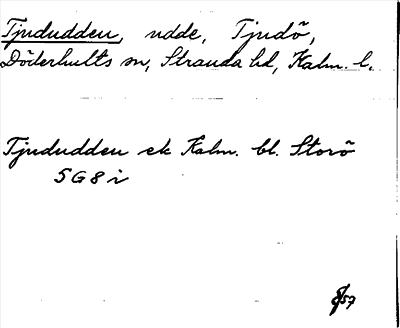 Tjududden, udde, Tjudö,
Döderhults sn, Stranda hd, Kalm. l.
Tjududden ek Kalm. bl. Storö
5G8i
57